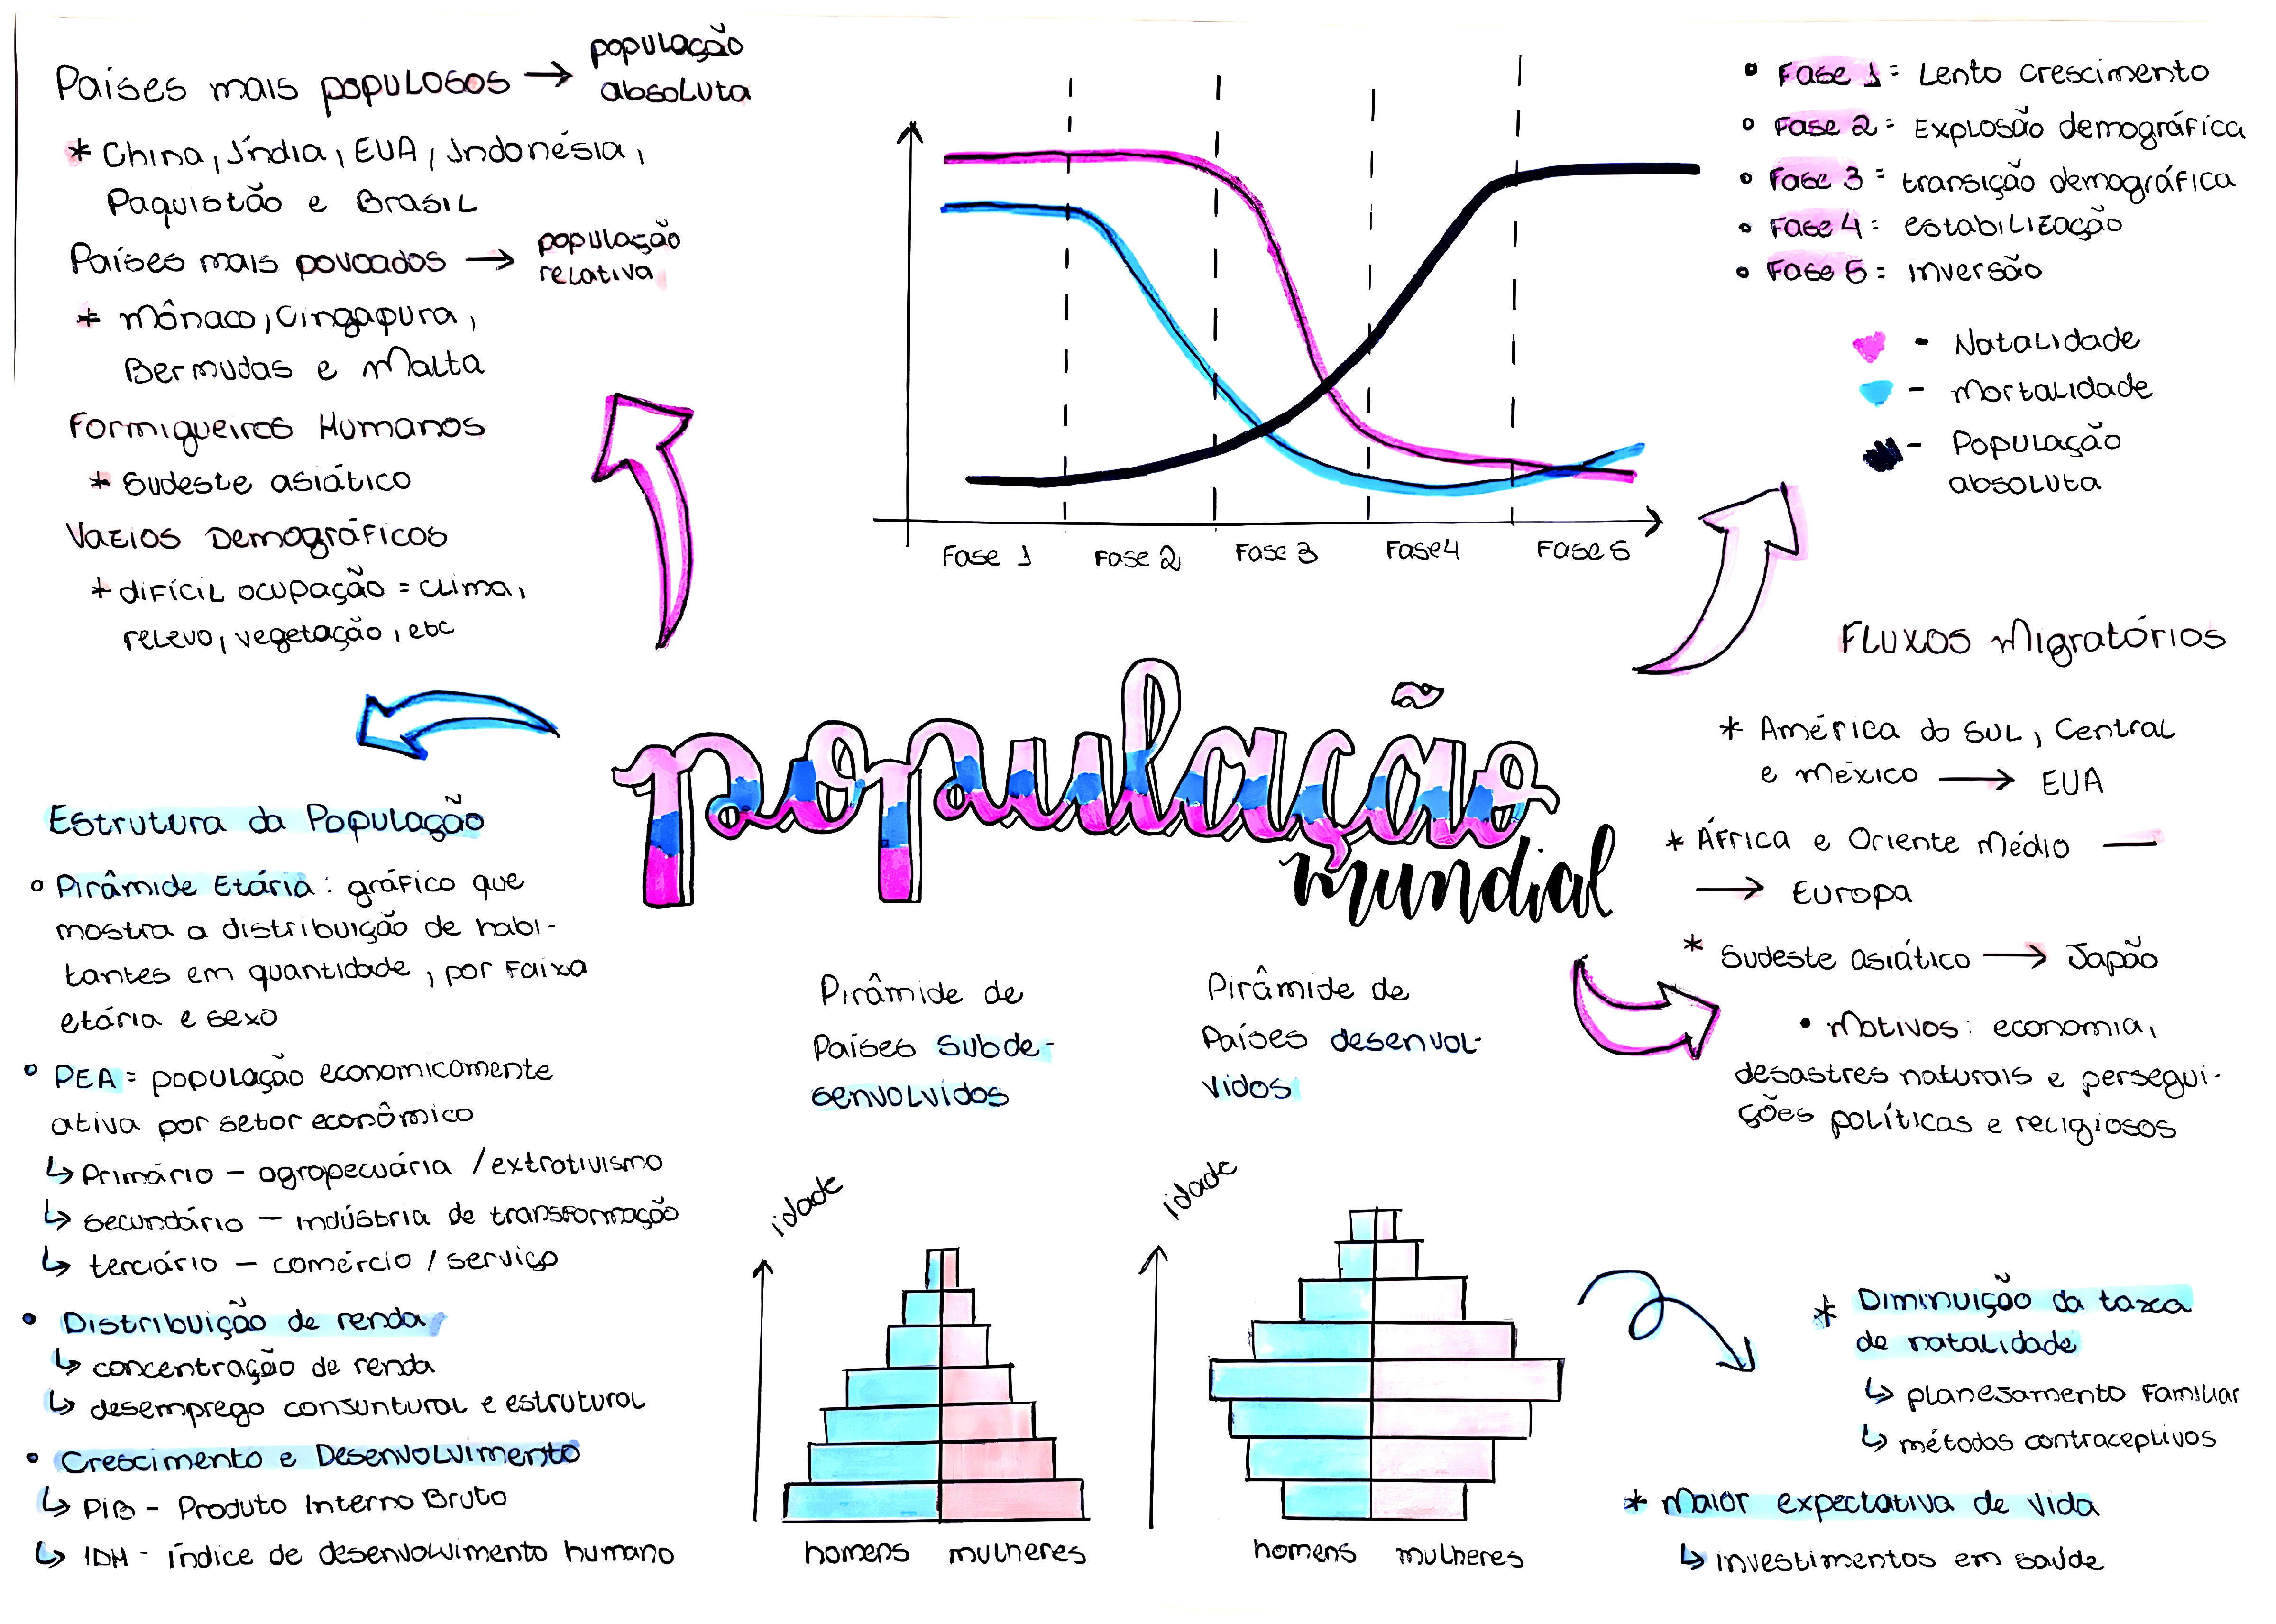 Países mais populosos → população
absoluta
* China, Índia, EUA, Indonésia,
Paquistão e Brasil
Países mais povoados → população
relativa
* Mônaco, Cingapura,
Bermudas e Malta
Formigueiros Humanos
* Sudeste asiático
Vazios Demográficos
* difícil ocupação = clima,
relevo, vegetação, etc
Fase 1
Fase 2
Fase 3
Fase 4
Fase 5
• Fase 1 = Lento crescimento
• Fase 2 = Explosão demográfica
• Fase 3 = transição demográfica
• Fase 4 = estabilização
• Fase 5 = inversão
- Natalidade
- Mortalidade
- População
absoluta
população
mundial
Fluxos Migratórios
* América do Sul, Central
e México → EUA
* África e Oriente Médio —
→ Europa
* Sudeste asiático → Japão
• Motivos: economia,
desastres naturais e persegui-
ções políticas e religiosos
Estrutura da População
• Pirâmide Etária: gráfico que
mostra a distribuição de habi-
tantes em quantidade, por faixa
etária e sexo
• PEA = população economicamente
ativa por setor econômico
↳ Primário - agropecuária / extrativismo
↳ secundário - indústria de transformação
↳ terciário - comércio / serviço
• Distribuição de renda
↳ concentração de renda
↳ desemprego conjuntural e estrutural
• Crescimento e Desenvolvimento
↳ PIB - Produto Interno Bruto
↳ IDH - índice de desenvolvimento humano
Pirâmide de
Países subde-
senvolvidos
idade
homens mulheres
Pirâmide de
Países desenvol-
vidos
idade
homens mulheres
* Diminuição da taxa
de natalidade
↳ planejamento familiar
↳ métodos contraceptivos
* Maior expectativa de vida
↳ investimentos em saúde